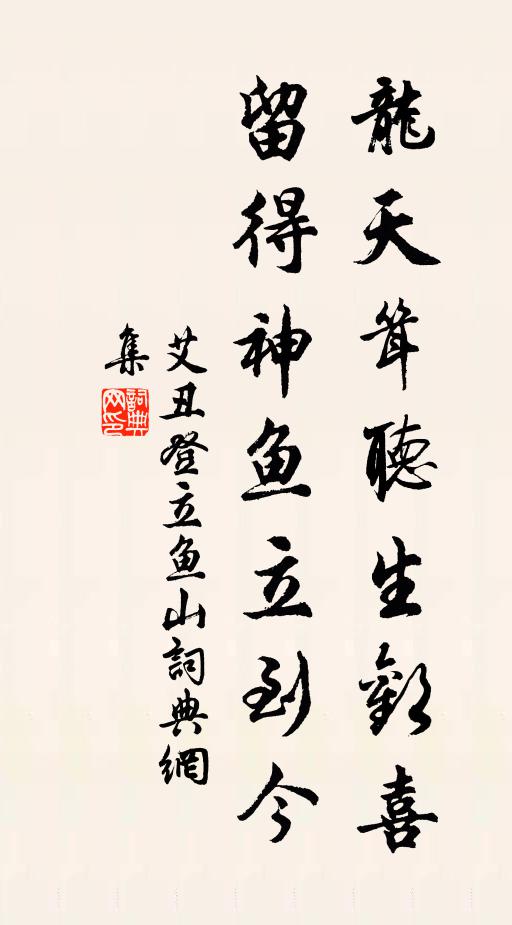 龍天耸聽生歡喜
留得神鱼立到今
艾丑登立鱼山詞典網
集
詞典网印